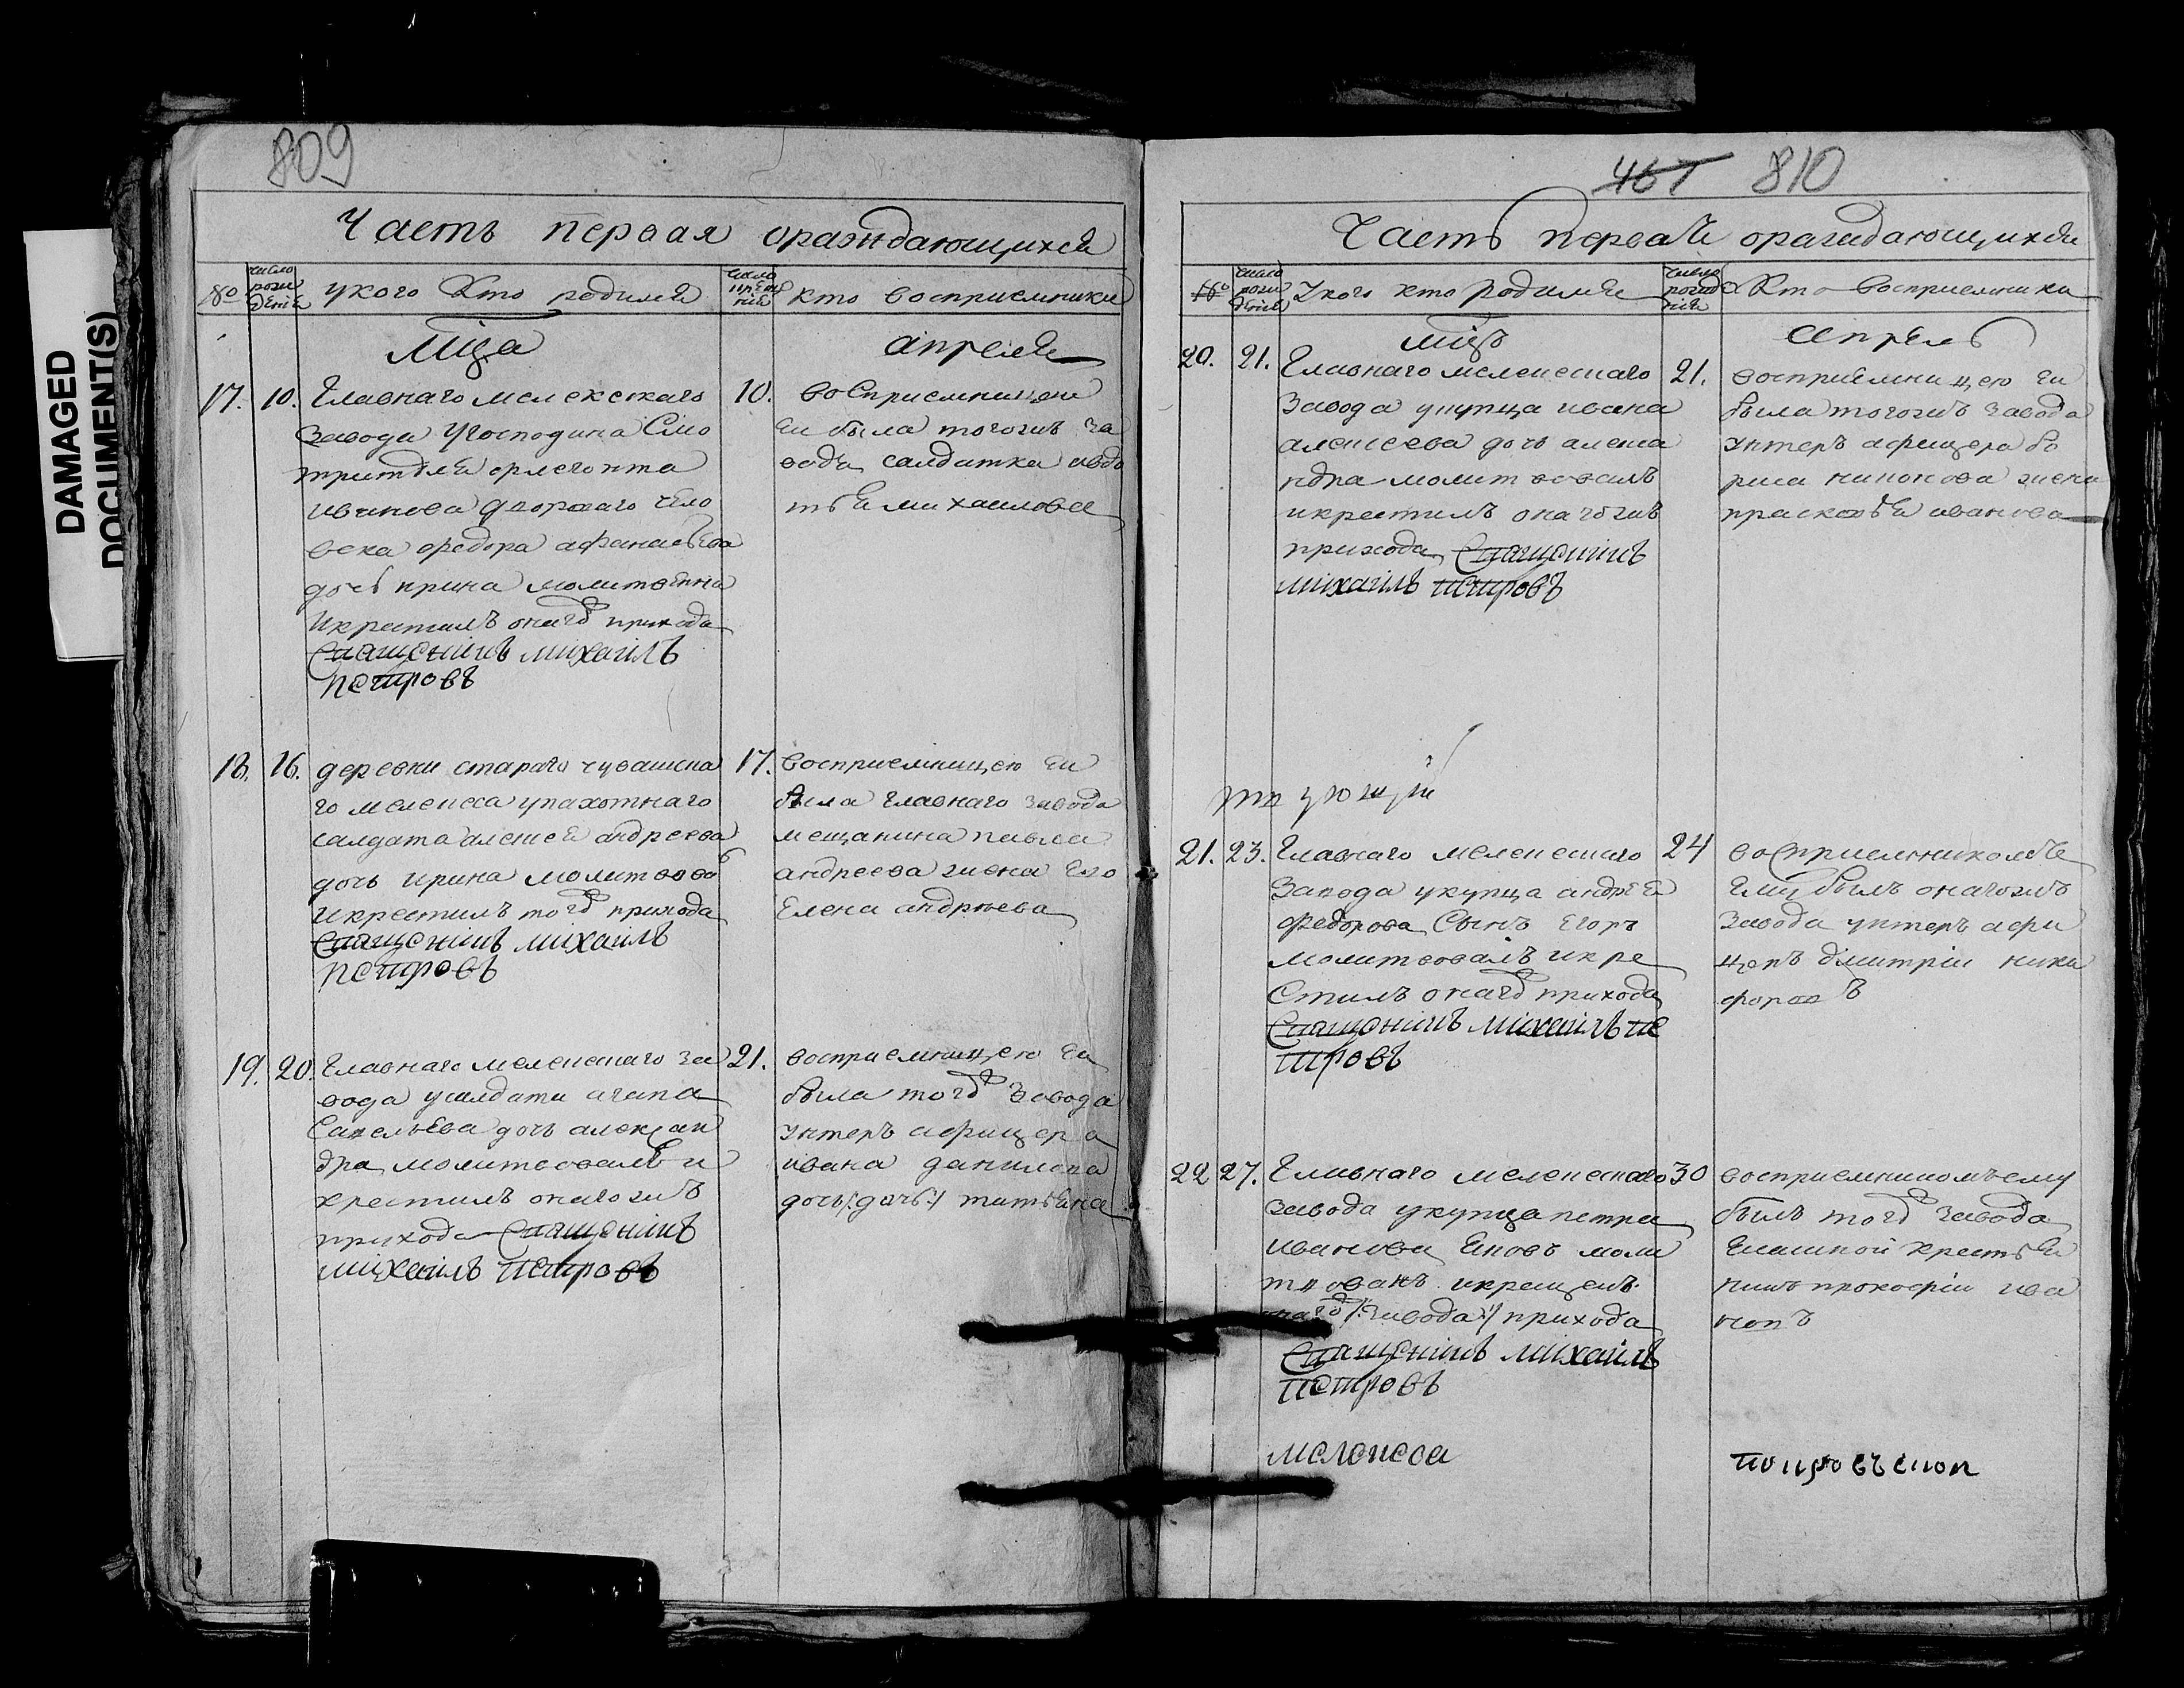 DAMAGED
DOCUMENT(S)
809
Часть первая ораждающихся
№
число рожденiя
укого Кто родился
число крещенiя
кто восприемники
Мца
апреля
17. 10.
Главнаго мелекескаго
завода Угосподина Смо
трителя
иванова двороваго чело
века федора афанасьева
дочь ирина молитвенна
икрестилъ онагѡ прихода
Священникъ михаилъ
петровъ
10.
восприемницею
еи была тогожъ за
вода салдатка авдо
тья михаилова
18. 16.
деревни стараго чувашска
го мелекеса упахотнаго
салдата алексея андреева
дочь ирина молитвова
икрестилъ тогѡ прихода
Священникъ михаилъ
петровъ
17.
восприемницею еи
была главнаго завода
мещанина павла
андреева жена его
елена андреева
19. 20.
Главнаго мелекескаго за
вода усалдата агапа
Савельева дочь алексан
дра молитвовалъ и
крестилъ онагожъ
прихода Священникъ
михаилъ петровъ
21.
восприемницею еи
была тогѡ завода
унтеръ афицера
ивана данилова
дочь /:дочь:/ татьяна
467 810
Часть первая ораждающихся
№
число рожденiя
Укого кто родился
число рожденiя
Кто восприемники
мцъ
апрель
20. 21.
Главнаго мелекескаго
завода укупца ивана
алексеева дочь алекса
ндра молитвовалъ
икрестилъ онагожъ
прихода Священникъ
михаилъ петровъ
21.
восприемницею еи
была тогожъ завода
унтеръ афицера бо
риса никонова жена
прасковья иванова
21. 23.
Главнаго мелекескаго
завода укупца андрея
федорова Сынъ Егоръ
молитвовалъ икре
стилъ онагѡ прихода
Священникъ михаилъ пе
тровъ
24
восприемникомъ
ему былъ онагожъ
завода унтеръ афи
церъ дмитрiи ники
форовъ
22 27.
Главнаго мелекескаго
завода укупца петра
иванова Яковъ моли
твованъ икрещенъ
онагѡ /:завода:/ прихода
Священникъ михаилъ
петровъ
30
восприемникомъ ему
былъ тогѡ завода
крестья
нинъ прокофiи ива
новъ
мелекеса
покровской